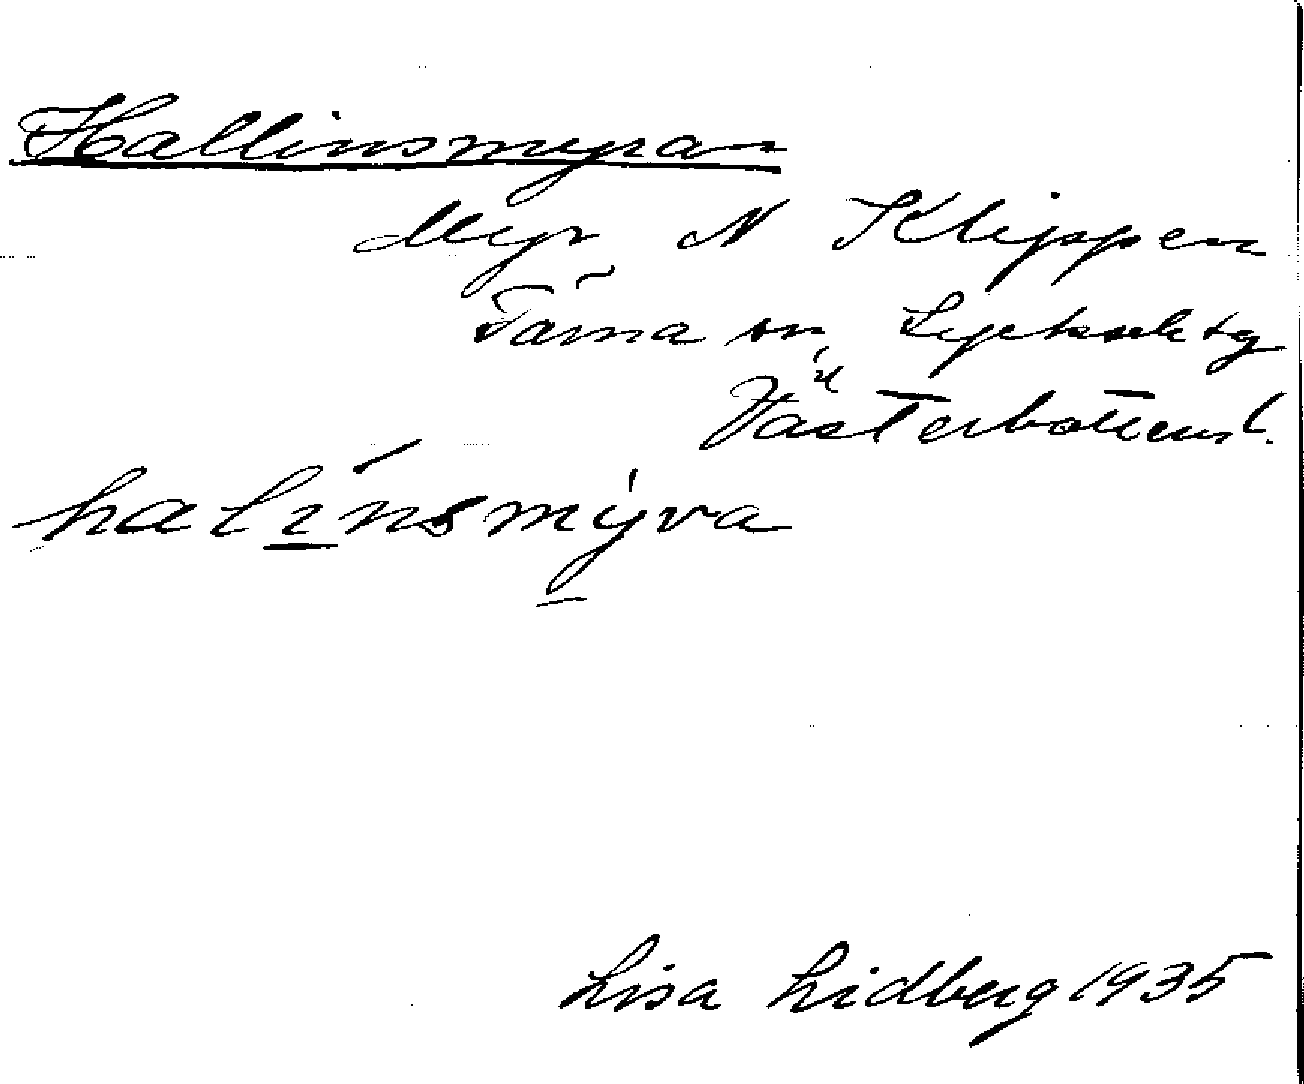 Hallinsmyran
Myr N Klippen
Tärna sn Lycksele tg
Västerbottens l.
halínsmýra
Lisa Lidberg 1935